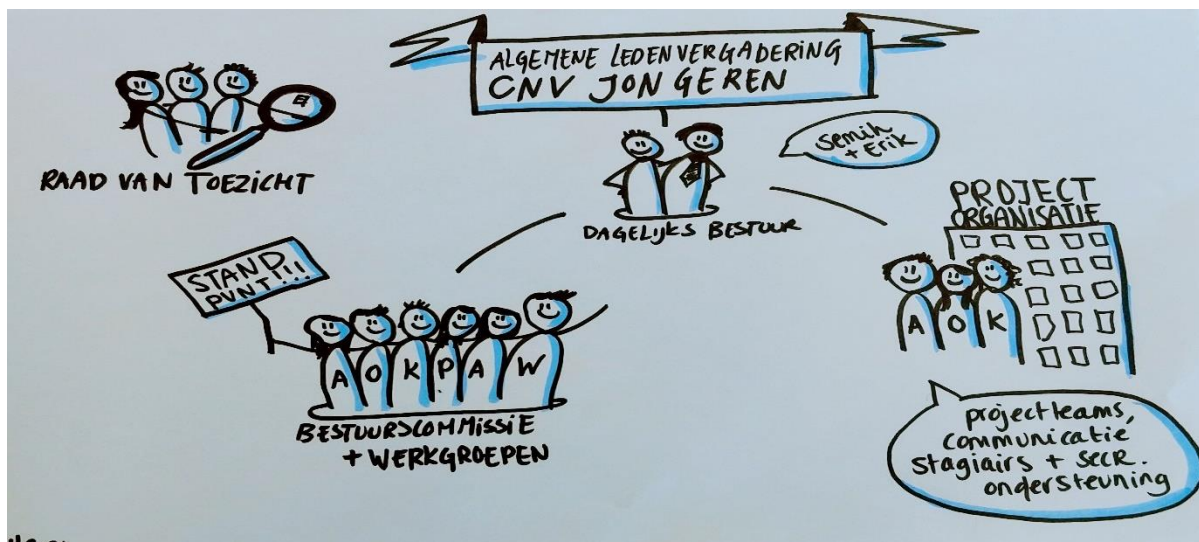 ALGEMENE LEDENVERGADERING
CNV JONGEREN
Semih
+ Erik
RAAD VAN TOEZICHT
DAGELIJKS BESTUUR
PROJECT
ORGANISATIE
STAND
PUNT!!!
A O K
A O K P A W
BESTUURSCOMMISSIE
+ WERKGROEPEN
projectteams,
communicatie
stagiairs + secr.
ondersteuning